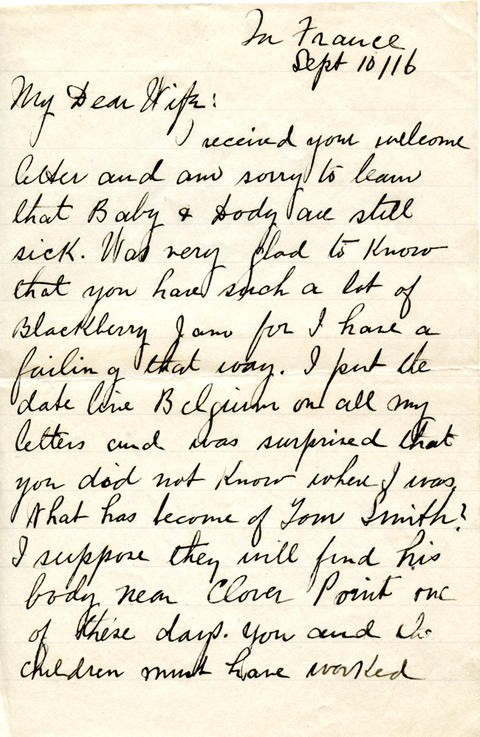 In France
Sept 10/16
My Dear Wife:
I received your welcome
letter and am sorry to learn
that Baby & Dody are still
sick. Was very glad to know
that you have such a lot of
Blackberry Jam for I have a
failing that way. I put the
date line Belgium on all my
letters and was surprised that
you did not know where I was.
What has become of Tom Smith?
I suppose they will find his
body near Clover Point one
of these days. You and the
children must have worked